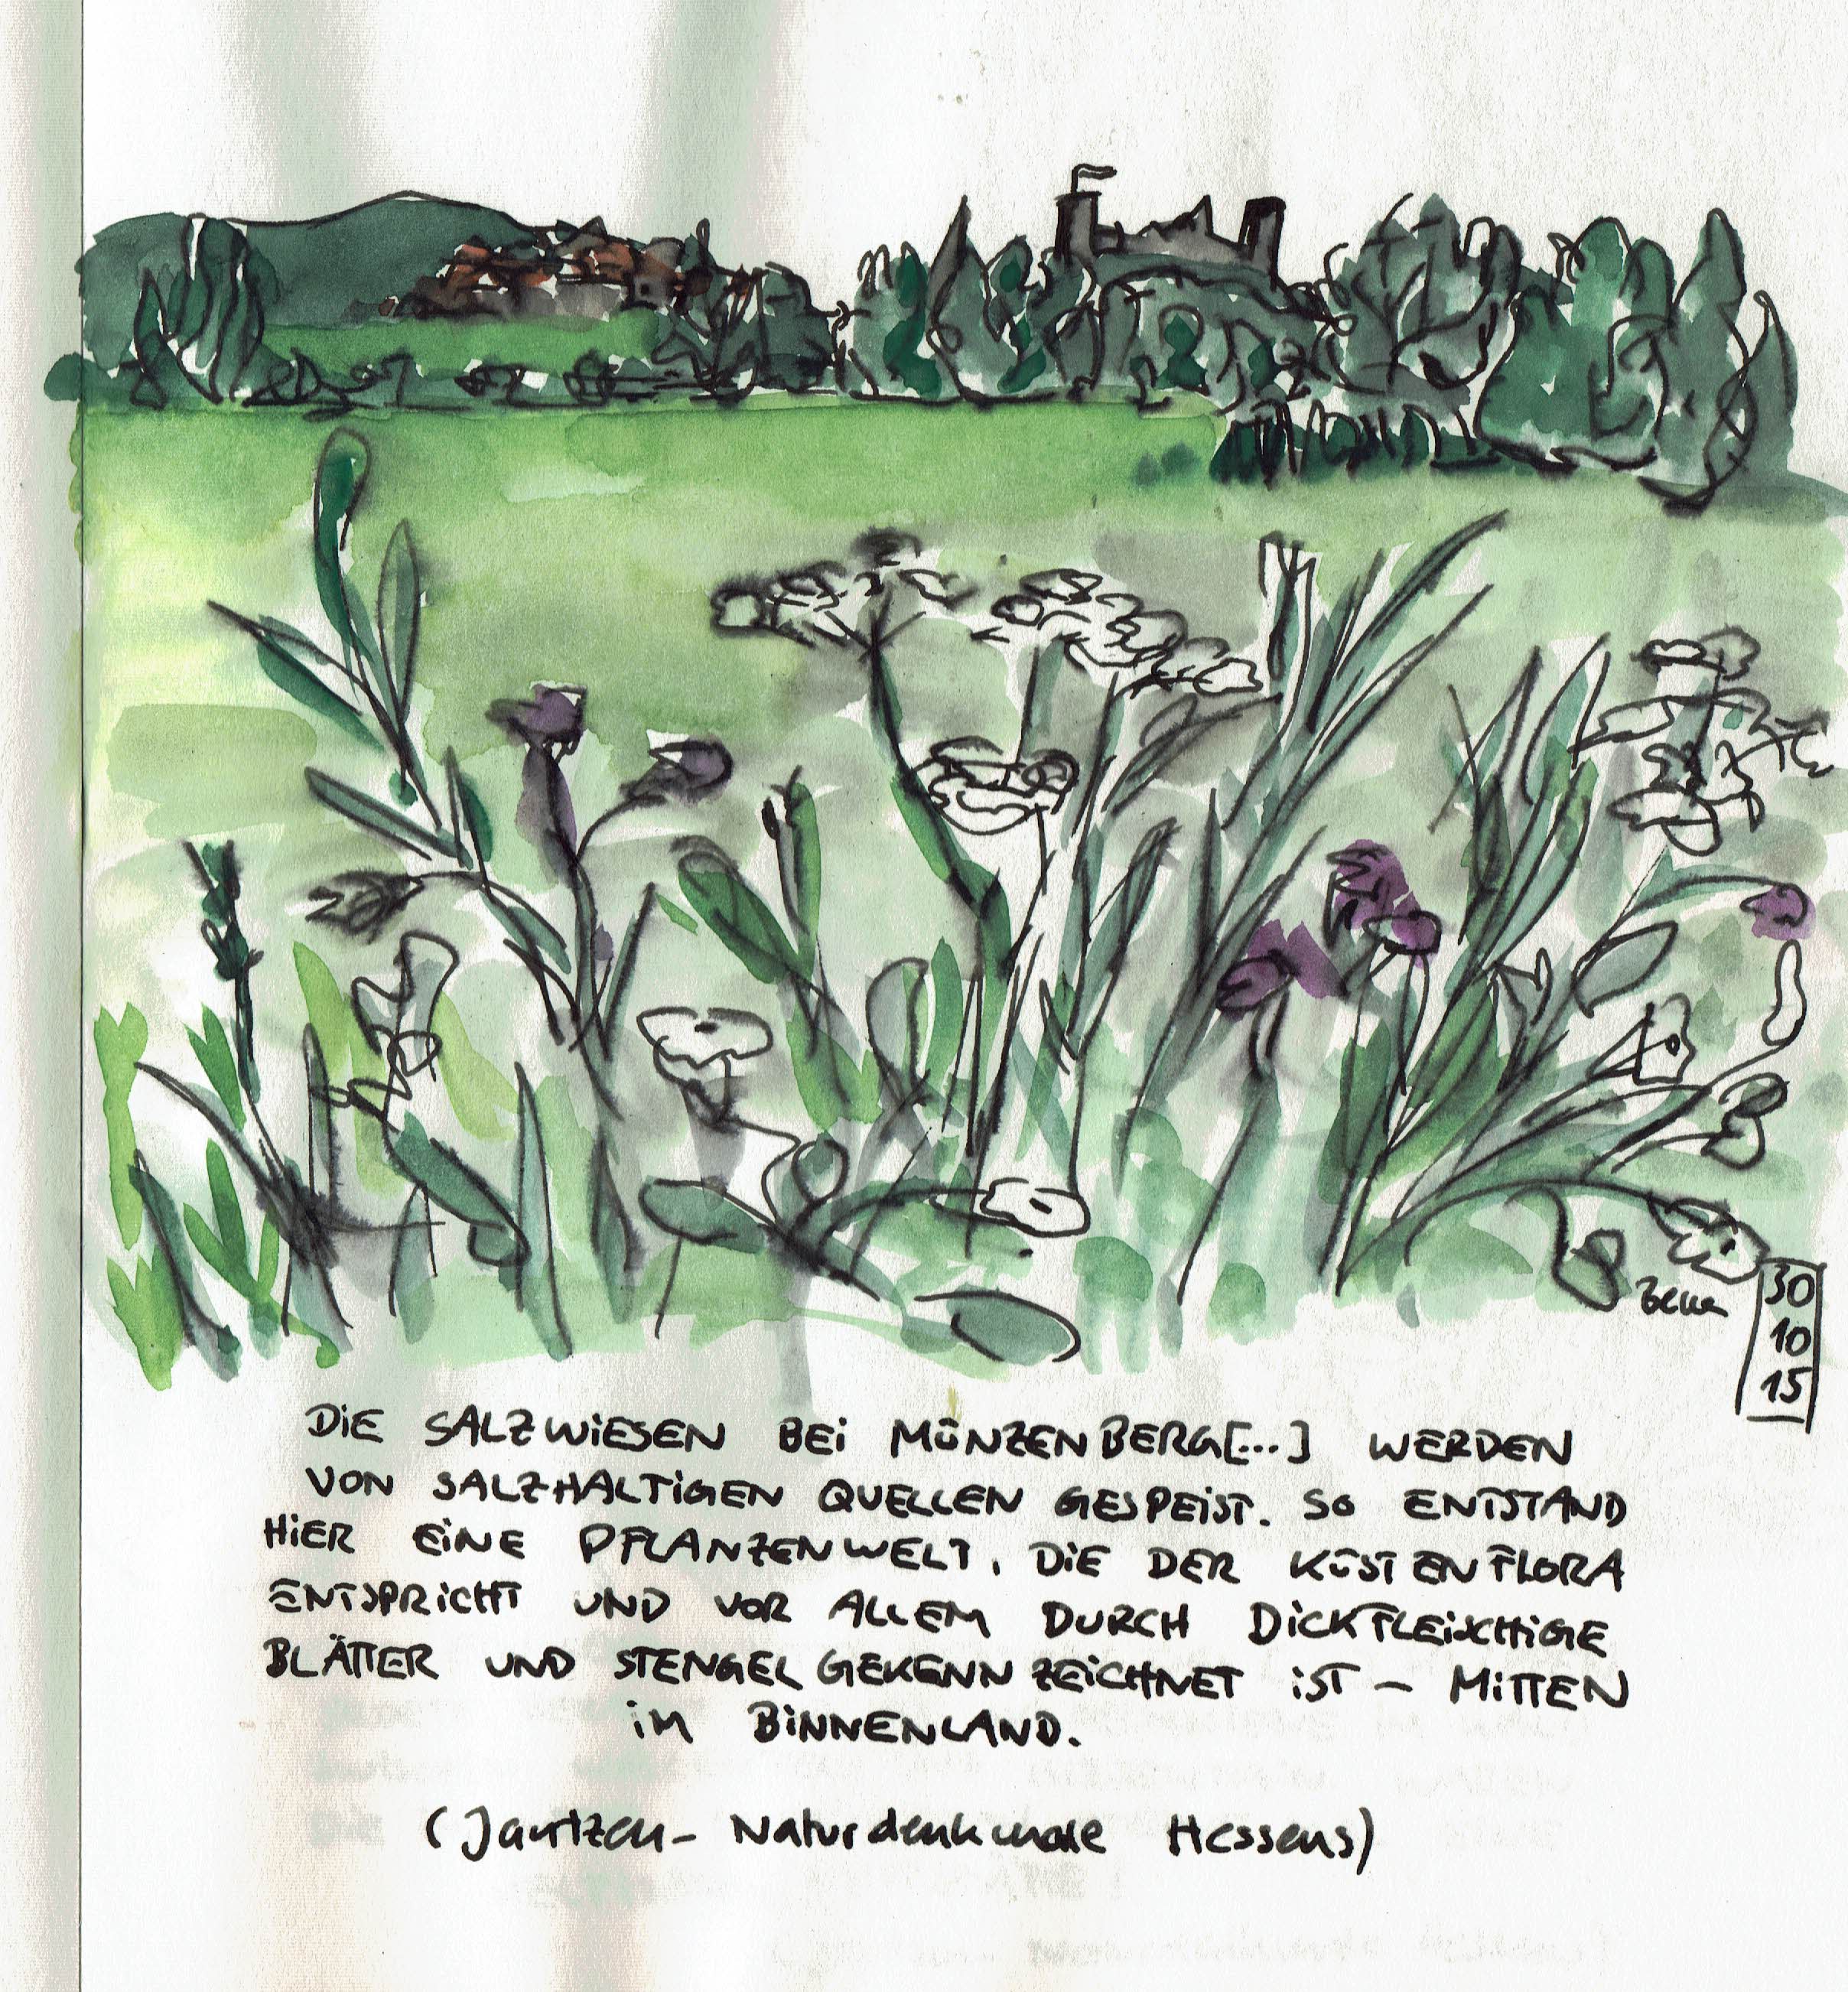 30
10
15
DiE SALZWiESEN BEi MÜNZENBERG[...] WERDEN
VON SALZHALTiGEN QUELLEN GESPEiST. SO ENTSTAND
HiER EiNE PFLANZENWELT, DiE DER KÜSTENFLORA
ENTSPRiCHT UND VOR ALLEM DURCH DiCKFLEiSCHiGE
BLÄTTER UND STENGEL GEKENNZEiCHNET iST – MiTTEN
iM BiNNENLAND.
(Jantzen – Naturdenkmale Hessens)